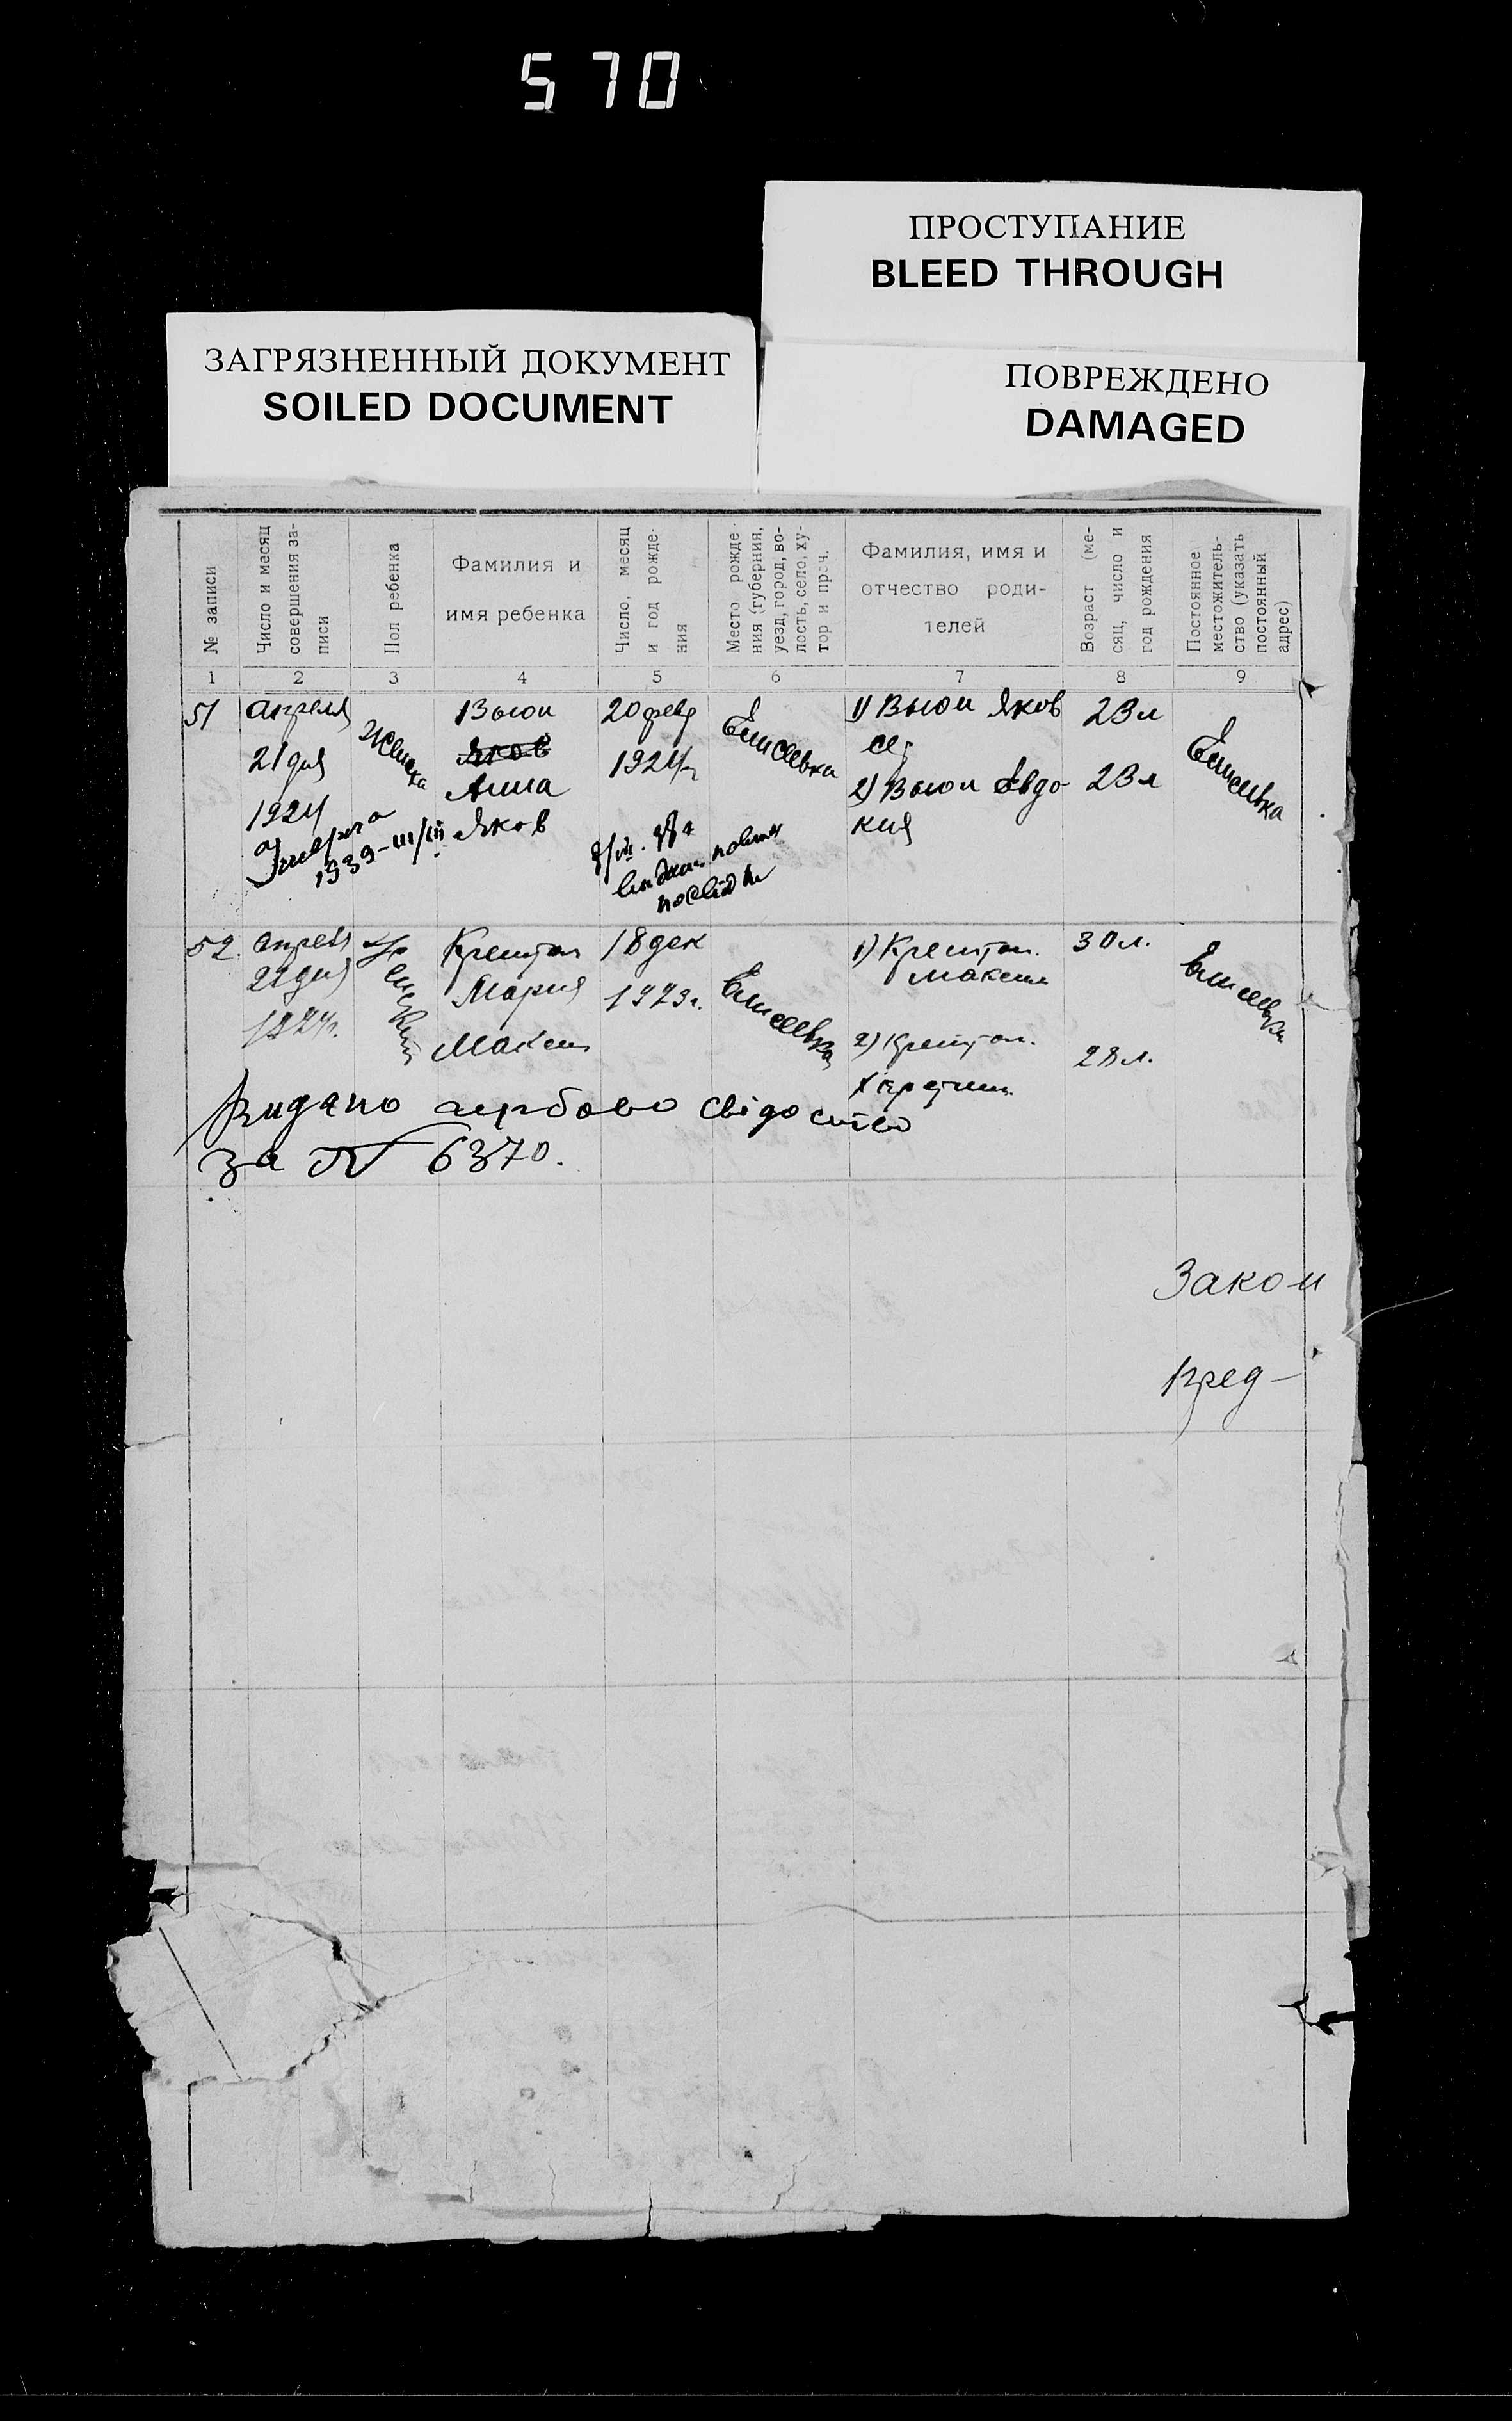 570
ПРОСТУПАНИЕ
BLEED THROUGH
ЗАГРЯЗНЕННЫЙ ДОКУМЕНТ
SOILED DOCUMENT
ПОВРЕЖДЕНО
DAMAGED
№ записи
Число и месяц
совершения за-
писи
Пол ребенка
Фамилия и
имя ребенка
Число, месяц
и год рожде-
ния
Место рожде
ния (губерния,
уезд, город, во-
лость, село, ху-
тор и проч.
Фамилия, имя и
отчество роди-
телей
Возраст (ме-
сяц, число и
год рождения
Постоянное
местожитель-
ство (указать
постоянный
адрес)
1 2 3 4 5 6 7 8 9
51
апреля
21 дня
1924
1939-III/III
Вьюн
Яков
Анна
Яков
20 февр
1924 г
Елисеевка
1) Вьюн Яков
2) Вьюн Евдо-
кия
23 л
23 л
Елисеевка
52
апреля
22 дня
1924г.
Женский
Мария
Максим
18 дек
1923г.
Елисеевка
1)
Максим
2)
30 л.
28 л.
Елисеевка
Видано гербово свідоство
за № 6370.
Закон
Пред-